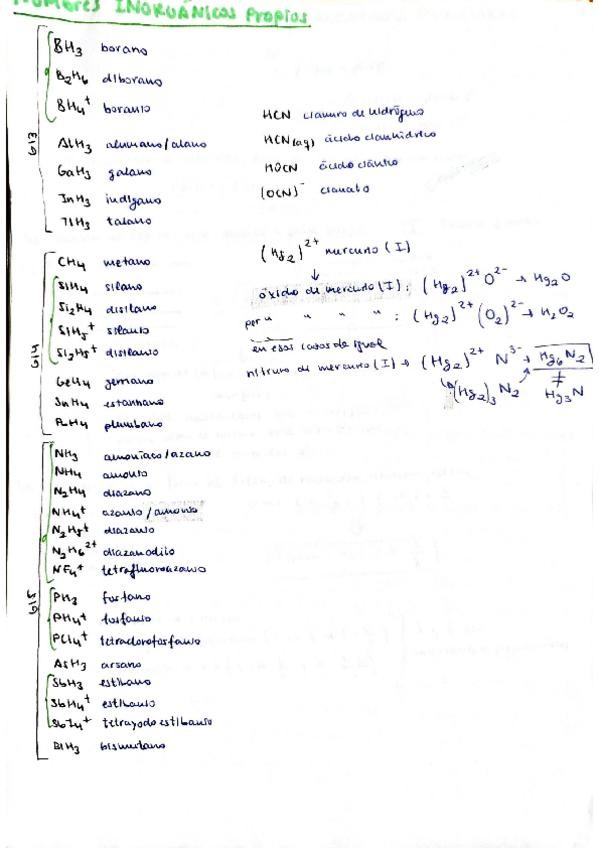 NOMBRES INORGÁNICOS Propios
G13
BH3 borano
B2H6 diborano
BH4+ boranio
AlH3 alumano/alano
GaH3 galano
InH3 indigano
TlH3 talano
HCN cianuro de hidrógeno
HCN(aq) ácido cianhídrico
HOCN ácido ciánico
(OCN)- cianato
G14
CH4 metano
SiH4 silano
Si2H4 disilano
SiH5+ silanio
Si2H5+ disilanio
GeH4 germano
SnH4 estannano
PbH4 plumbano
(Hg2)2+ mercurio (I)
↓
óxido de mercurio (I): (Hg2)2+ O2- → Hg2O
per " " " " : (Hg2)2+ (O2)2- → H2O2
en esos casos da igual
nitruro de mercurio (I) → (Hg2)2+ N3- → Hg6N2
↳ (Hg2)3 N2 ↗ ≠
Hg3N
G15
NH3 amoníaco/azano
NH4 amonio
N2H4 diazano
NH4+ azanio/amonio
N2H5+ diazanio
N2H6 2+ diazanodiio
NF4+ tetrafluoroazanio
PH3 fosfano
PH4+ fosfanio
PCl4+ tetraclorofosfanio
AsH3 arsano
SbH3 estibano
SbH4+ estibanio
SbI4+ tetrayodoestibanio
BiH3 bismutano